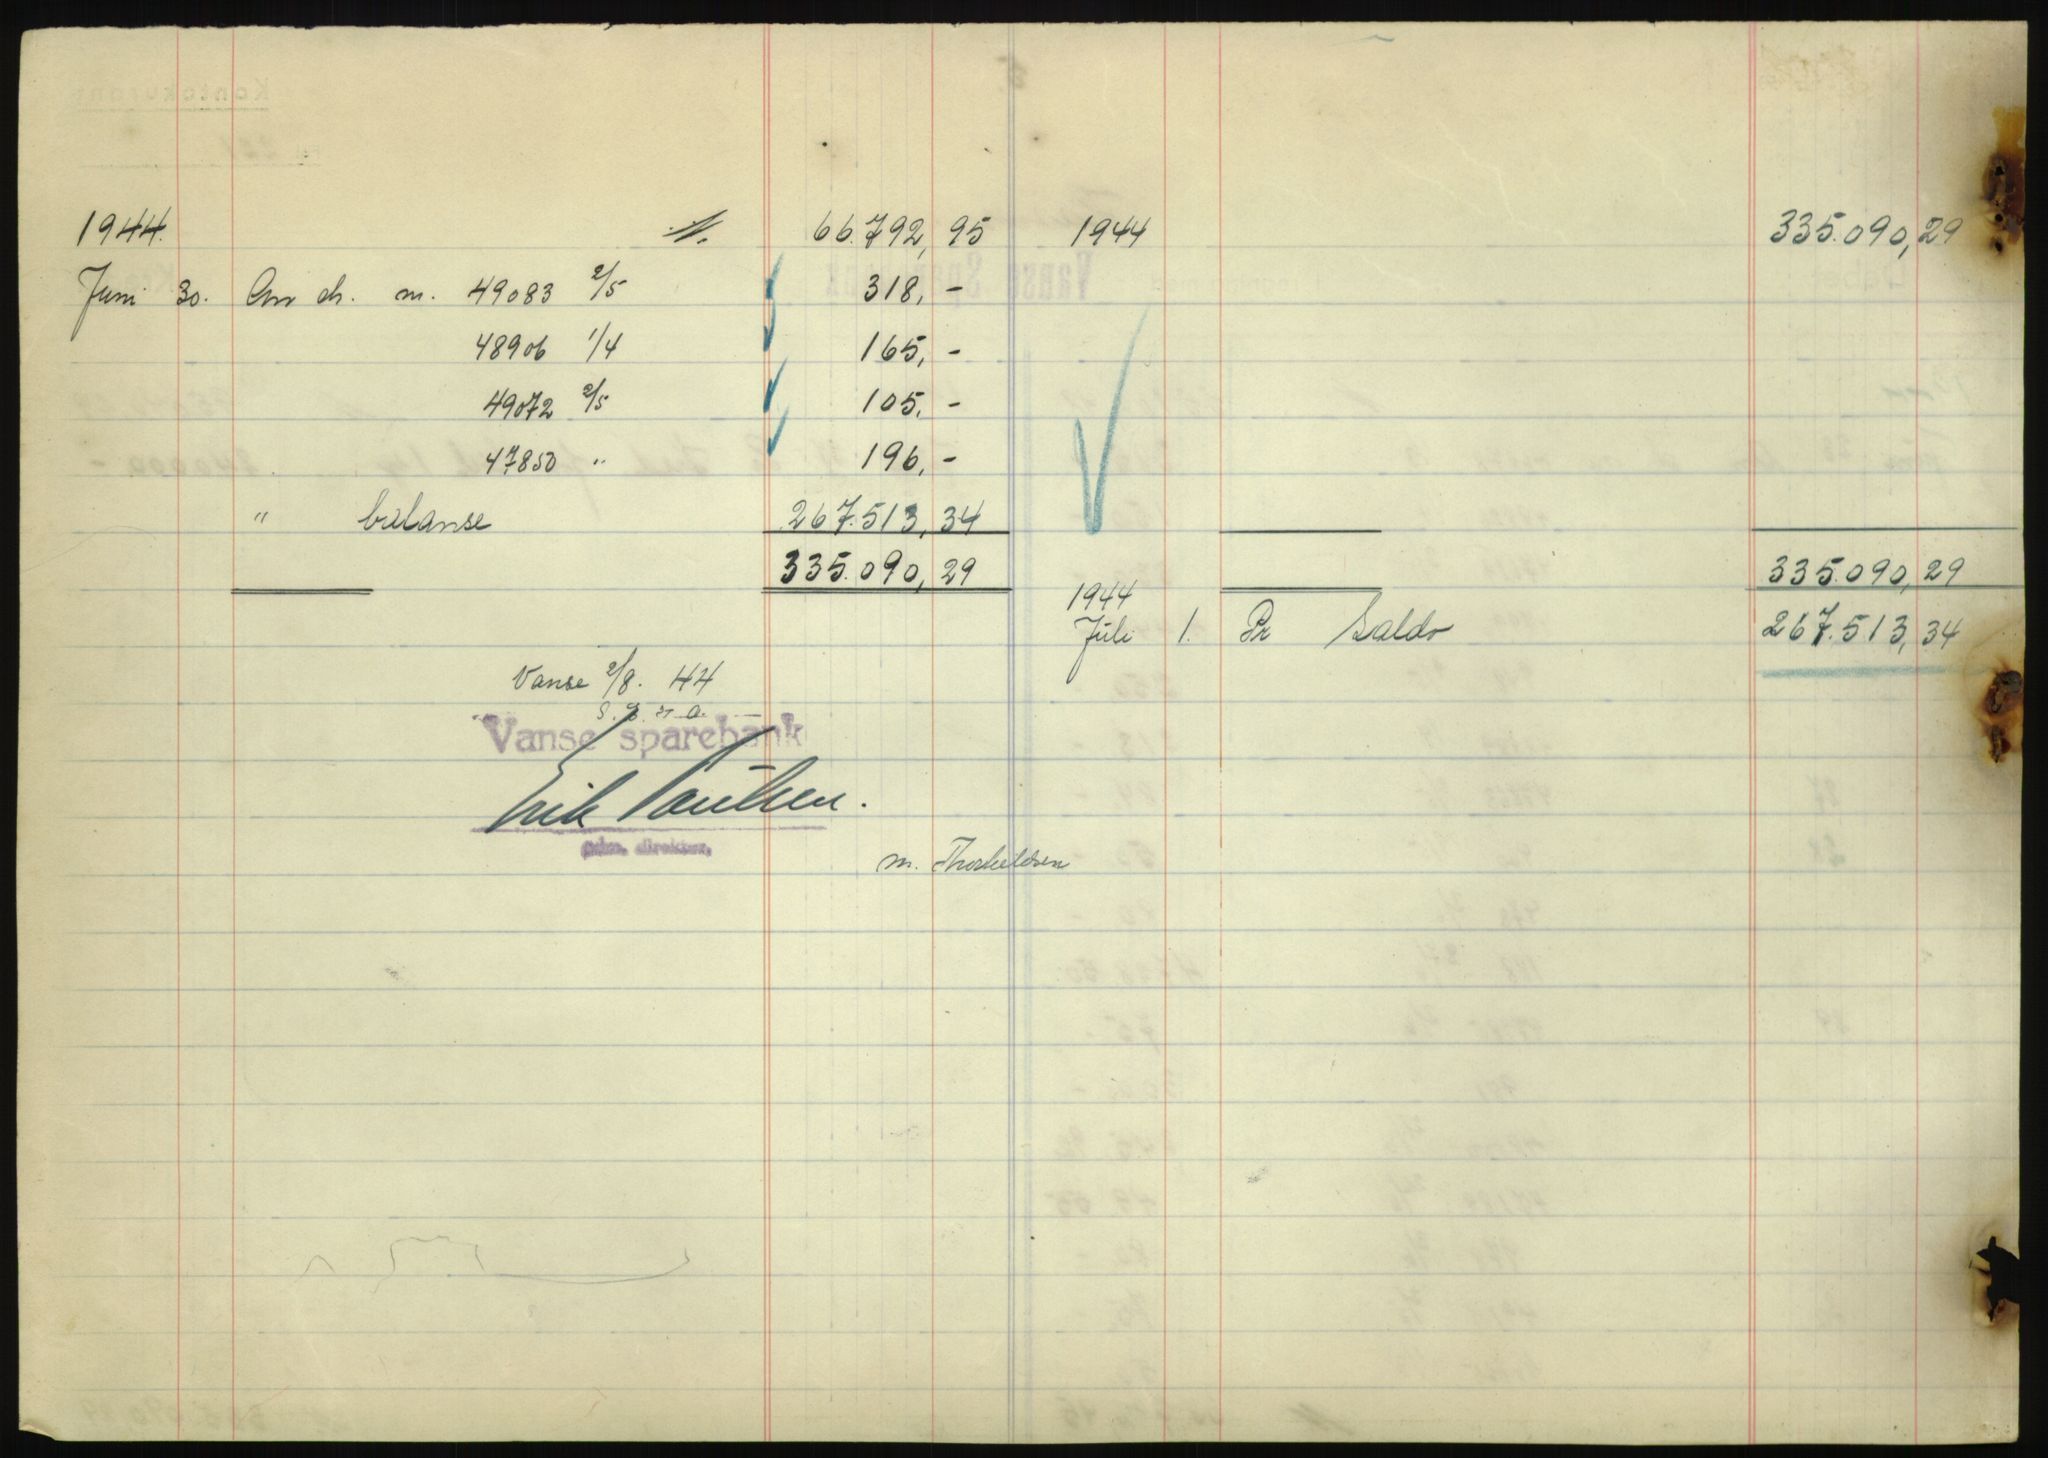 1944. 66.792,95 1944 335.090,29
Juni 30. An ch. m. 49083 2/5 318,-
48906 1/4 165,-
49072 2/5 105,-
47850 " 196,-
" balanse 267.513,34
335.090,29 335.090,29
1944
Juli 1. Pr Saldo 267.513,34
Vanse 2/8. 44
Vanse sparebank
Erik Poulsen.
adm. direktør.